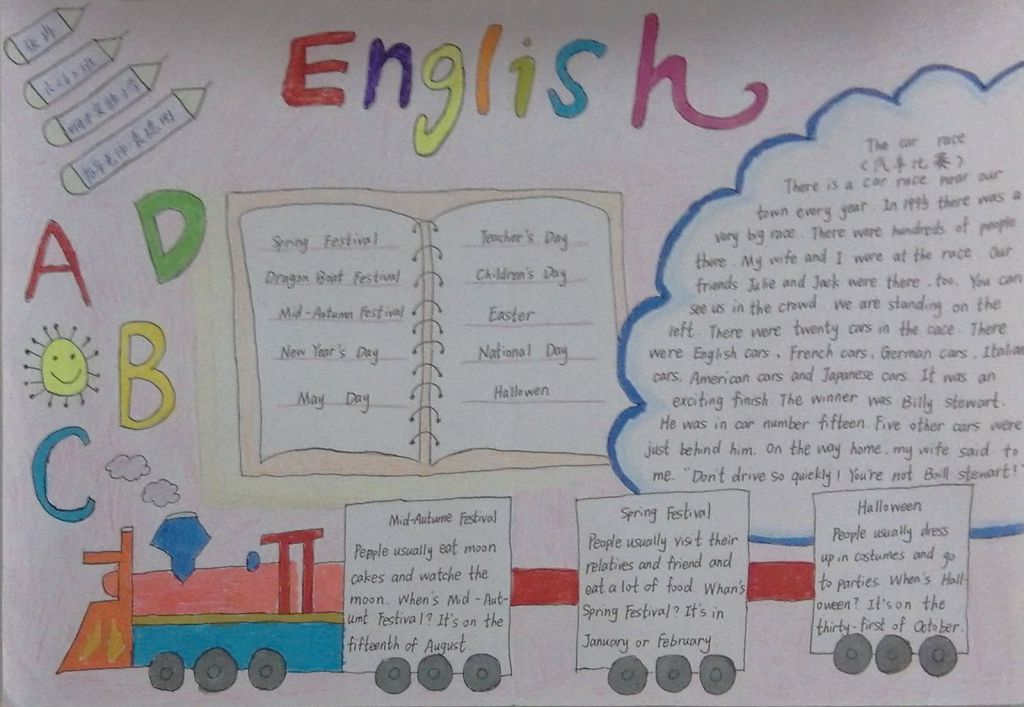 English
A
D
B
C
Spring Festival
Dragon Boat Festival
Mid-Autumn Festival
New Year's Day
May Day
Teacher's Day
Children's Day
Easter
National Day
Hallowen
The car race
(汽车比赛)
There is a car race near our
town every year. In 1993 there was a
very big race. There were hundreds of people
there. My wife and I were at the race. Our
friends Julie and Jack were there, too. You can
see us in the crowd. we are standing on the
left. There were twenty cars in the cace. There
were English cars, French cars, German cars, Italian
cars, American cars and Japanese cars. It was an
exciting finish. The winner was Billy stewart.
He was in car number fifteen. Five other cars were
just behind him. On the way home, my wife said to
me. "Don't drive so quickly! You're not Boill stewart!"
Mid-Autume Festival
Pepple usually eat moon
cakes and watche the
moon. When's Mid-Aut-
umt Festival? It's on the
fifteenth of August
Spring Festival
People usually visit their
relatives and friend and
eat a lot of food. Whan's
Spring Festival? It's in
January or February.
Halloween
People usually dress
up in costumes and go
to parties. When's Hall-
oween? It's on the
thirty-first of October.